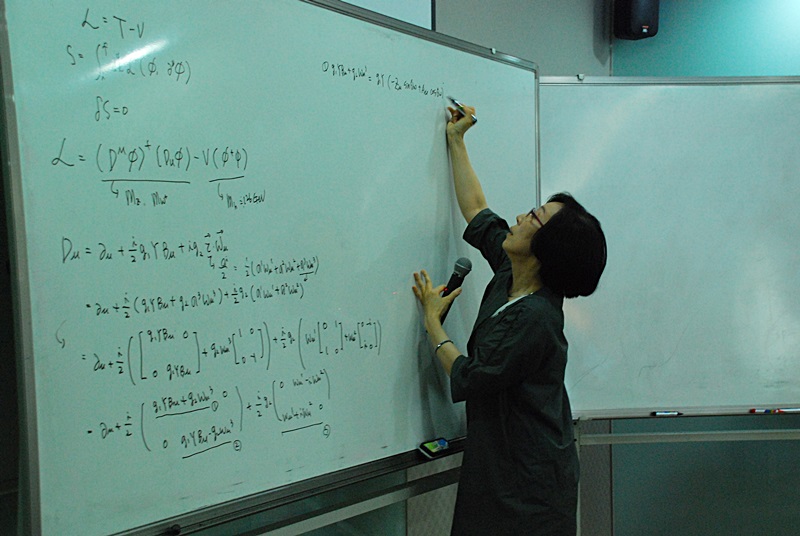 L = T - V
S = ∫ L (φ, ∂φ)
δS = 0
L = (D^μ φ)^† (D_μ φ) - V(φ^† φ)
↳ M_Z, M_W ↳ M_h = 125 GeV
D_μ = ∂_μ + i/2 g₁YB_μ + i g₂ τ⃗ W⃗_μ
↳ σ⃗/2 = 1/2 (σ¹W_μ¹ + σ²W_μ² + σ³W_μ³)
= ∂_μ + i/2 (g₁YB_μ + g₂ σ³W_μ³) + i/2 g₂ (σ¹W_μ¹ + σ²W_μ²)
= ∂_μ + i/2 ( [ g₁YB_μ 0
0 g₁YB_μ ] + g₂W_μ³ [ 1 0
0 -1 ] ) + i/2 g₂ ( W_μ¹ [ 0 1
1 0 ] + W_μ² [ 0 -i
i 0 ] )
= ∂_μ + i/2 ( g₁YB_μ + g₂W_μ³ ① 0
0 g₁YB_μ - g₂W_μ³ ② ) + i/2 g₂ ( 0 W_μ¹ - iW_μ²
W_μ¹ + iW_μ² 0 ) ③
① g₁YB_μ + g₂W_μ³ = g₁Y (-Z_μ sinθ_W + A_μ cosθ_W)